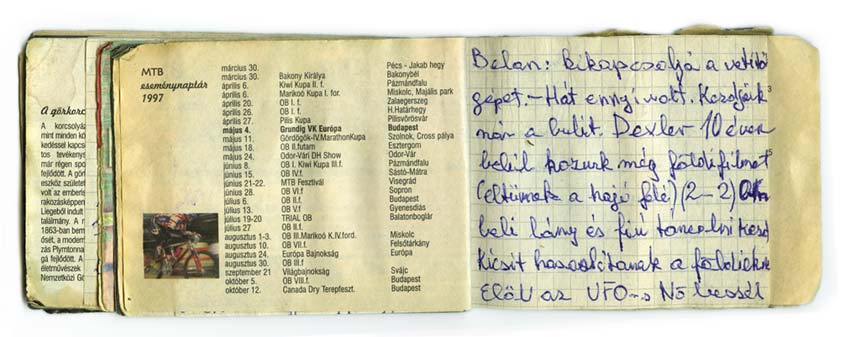 A görkorc
A korcsolyá
mint minden kö
kedéssel kapcs
tos tevékenys
már régen spo
fejlődött. A gör
eszköz születé
volt az emberis
rakozásképpen
Liegeből indult
találmány. A r
1863-ban bem
ősét, a modern
zás Plymtonna
ga fejlődött. A
életművészek
Nemzetközi Gö
MTB
eseménynaptár
1997
március 30. Pécs - Jakab hegy
március 30. Bakony Királya Bakonybél
április 6. Kiwi Kupa II. f. Pázmándfalu
április 6. Marikoó Kupa I. for. Miskolc, Majális park
április 20. OB I. f. Zalaegerszeg
április 26. OB I. f. H.Határhegy
április 27. Pilis Kupa Pilisvörösvár
május 4. Grundig VK Európa Budapest
május 11. Gördögök-IV.MarathonKupa Szolnok, Cross pálya
május 18. OB II.futam Esztergom
május 24. Odor-Vári DH Show Odor-Vár
június 8. OB I. Kiwi Kupa III.f. Pázmándfalu
június 15. OB IV.f Sástó-Mátra
június 21-22. MTB Fesztivál Visegrád
június 28. OB VI.f Sopron
július 6. OB II.f Budapest
július 13. OB V.f Gyenesdiás
július 19-20 TRIAL OB Balatonboglár
július 27 OB II.f.
augusztus 1-3. OB III.Marikoó K.IV.ford. Miskolc
augusztus 10. OB VII.f. Felsőtárkány
augusztus 24. Európa Bajnokság Európa
augusztus 30. OB III.f
szeptember 21 Világbajnokság Svájc
október 5. OB VIII.f. Budapest
október 12. Canada Dry Terepfeszt. Budapest
Belan: kikapcsolja a vetítő
gepet. – Hát ennyi volt. Kezdjük
már a bulit. Dexler 10 éven
belül hozunk még földi filmet
(eltünnek a hajó felé) (2–2)
beli lány és fiú táncolni kezd
Kicsit hasonlítanak a földiekre
Elöl az UFO-s Nő beszél